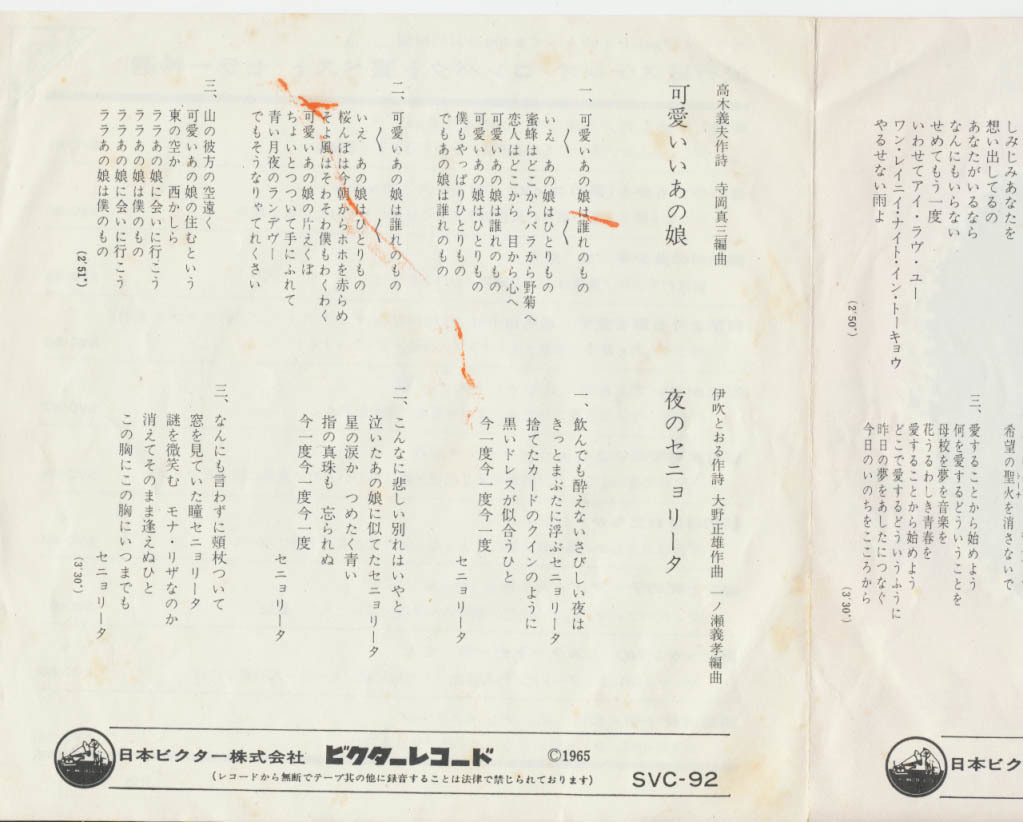 しみじみあなたを
想い出してるの
あなたがいるなら
なんにもいらない
せめてもう一度
いわせてアイ・ラヴ・ユー
ワン・レイニイ・ナイト・イン・トーキョウ
やるせない雨よ
(2′50″)
希望の聖火を消さないで
三、愛することから始めよう
何を愛するどういうことを
母校を夢を音楽を
花うるわしき青春を
愛することから始めよう
どこで愛するどういうふうに
昨日の夢をあしたにつなぐ
今日のいのちをこころから
(3′30″)
日本ビク
高木義夫作詩 寺岡真三編曲
可愛いいあの娘
一、可愛いあの娘は誰れのもの
〱 〱
いえ あの娘はひとりもの
蜜蜂はどこからバラから野菊へ
恋人はどこから 目から心へ
可愛いあの娘は誰れのもの
可愛いあの娘はひとりもの
僕もやっぱりひとりもの
でもあの娘は誰れのもの
二、可愛いあの娘は誰れのもの
〱 〱
いえ あの娘はひとりもの
桜んぼは今朝からホホを赤らめ
そよ風はそわそわ僕もわくわく
可愛いあの娘の片えくぼ
ちょいとつついて手にふれて
青い月夜のランデヴー
でもそうなりゃてれくさい
三、山の彼方の空遠く
可愛いあの娘の住むという
東の空か 西かしら
ララあの娘に会いに行こう
ララあの娘は僕のもの
ララあの娘に会いに行こう
ララあの娘は僕のもの
(2′51″)
伊吹とおる作詩 大野正雄作曲 一ノ瀬義孝編曲
夜のセニョリータ
一、飲んでも酔えないさびしい夜は
きっとまぶたに浮ぶセニョリータ
捨てたカードのクインのように
黒いドレスが似合うひと
今一度今一度今一度
セニョリータ
二、こんなに悲しい別れはいやと
泣いたあの娘に似てたセニョリータ
星の涙か つめたく青い
指の真珠も 忘られぬ
今一度今一度今一度
セニョリータ
三、なんにも言わずに頬杖ついて
窓を見ていた瞳セニョリータ
謎を微笑む モナ・リザなのか
消えてそのまま逢えぬひと
この胸にこの胸にいつまでも
セニョリータ
(3′30″)
日本ビクター株式会社 ビクターレコード ©1965
(レコードから無断でテープ其の他に録音することは法律で禁じられております) SVC-92